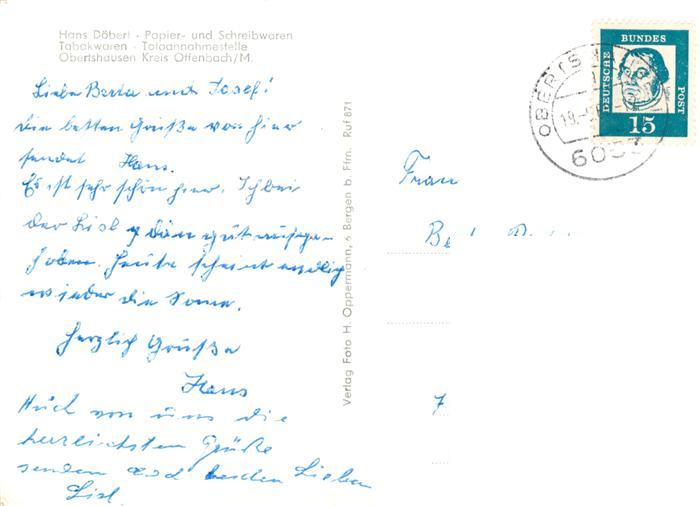 Hans Döberl · Papier- und Schreibwaren
Tabakwaren · Totoannahmestelle
Obertshausen Kreis Offenbach/M.
Liebe Berta und Josef!
Die besten Grüße von hier
sendet Hans.
Es ist sehr schön hier. Ich bei
der Lisl gut aufge-
hoben. Heute scheint endlich
wieder die Sonne.
Herzlich Grüße
Hans
Auch von uns die
herzlichsten Grüße
senden beiden Lieben
Lisl
Verlag Foto H. Oppermann, 6 Bergen b. Ffm. Ruf 871
DEUTSCHE BUNDES POST
15
OBERTS
19.
605
Frau
Be
7